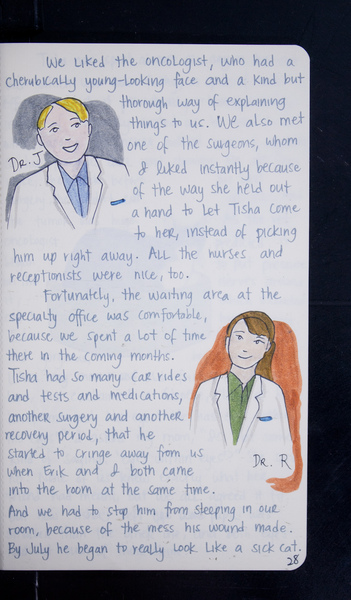 We liked the oncologist, who had a
cherubically young-looking face and a kind but
thorough way of explaining
things to us. We also met
one of the surgeons, whom
I liked instantly because
of the way she held out
a hand to let Tisha come
to her, instead of picking
him up right away. All the nurses and
receptionists were nice, too.
Dr. J
Fortunately, the waiting area at the
specialty office was comfortable,
because we spent a lot of time
there in the coming months.
Tisha had so many car rides
and tests and medications,
another surgery and another
recovery period, that he
started to cringe away from us
when Erik and I both came
into the room at the same time.
Dr. R
And we had to stop him from sleeping in our
room, because of the mess his wound made.
By July he began to really look like a sick cat.
28